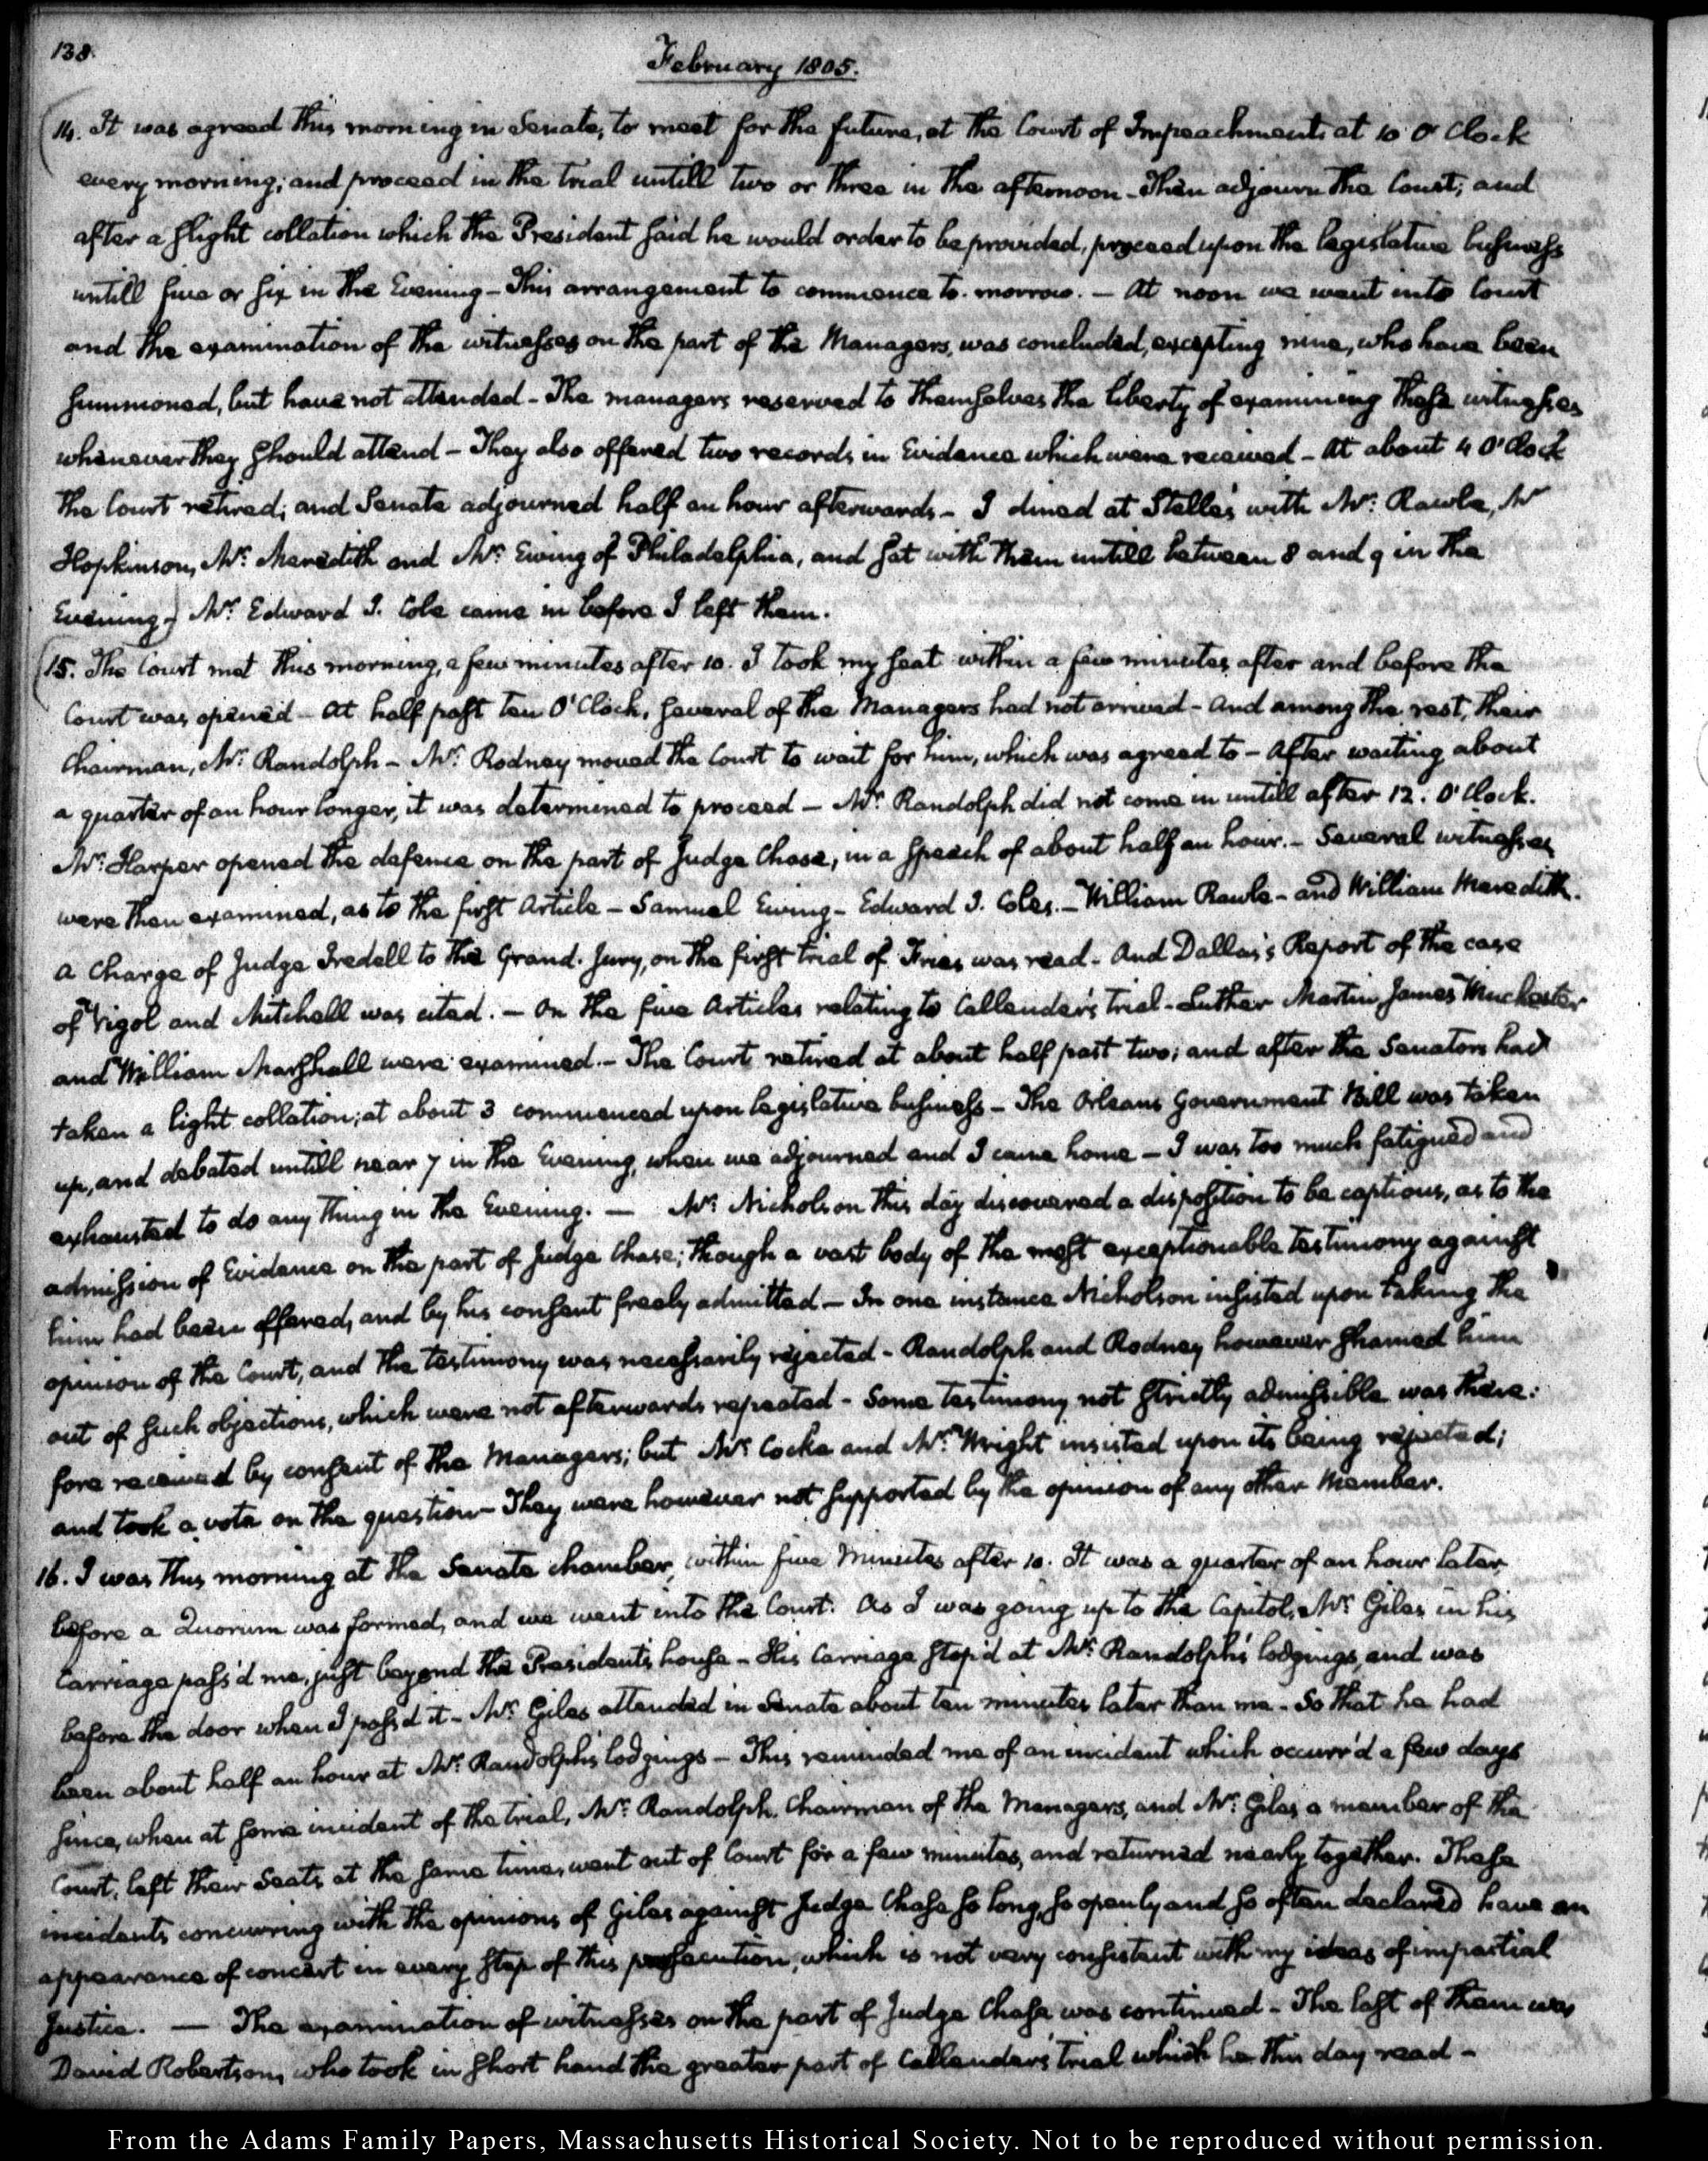 138.
February 1805.
14. It was agreed this morning in Senate, to meet for the future, at the Court of Impeachments at 10 O'Clock
every morning; and proceed in the trial untill two or three in the afternoon - Then adjourn the Court; and
after a slight collation which the President said he would order to be provided, proceed upon the legislative business
untill five or six in the Evening - This arrangement to commence to-morrow. - At noon we went into Court
and the examination of the witnesses on the part of the Managers, was concluded, excepting nine, who have been
summoned, but have not attended - The managers reserved to themselves the liberty of examining these witnesses
whenever they should attend - They also offered two records in Evidence which were received - At about 4 O'Clock
the Court retired; and Senate adjourned half an hour afterwards - I dined at Stelle's with Mr: Rawle, Mr
Hopkinson, Mr: Meredith and Mr: Ewing of Philadelphia, and sat with them untill between 8 and 9 in the
Evening - Mr: Edward J. Cole came in before I left them.
15. The Court met this morning, a few minutes after 10. I took my seat within a few minutes after and before the
Court was opened - At half past ten O'Clock, several of the Managers had not arrived - And among the rest, their
Chairman, Mr: Randolph - Mr: Rodney moved the Court to wait for him, which was agreed to - After waiting about
a quarter of an hour longer, it was determined to proceed - Mr: Randolph did not come in untill after 12. O'Clock.
Mr: Harper opened the defence on the part of Judge Chase, in a speech of about half an hour. - Several witnesses
were then examined, as to the first Article - Samuel Ewing - Edward J. Coles. - William Rawle - and William Meredith.
A Charge of Judge Iredell to the Grand-Jury, on the first trial of Fries was read - And Dallas's Report of the case
of Vigol and Mitchell was cited. - On the five Articles relating to Callender's trial - Luther Martin James Winchester
and William Marshall were examined. - The Court retired at about half past two; and after the Senators had
taken a light collation; at about 3 commenced upon legislative business - The Orleans Government Bill was taken
up, and debated untill near 7 in the Evening, when we adjourned and I came home - I was too much fatigued and
exhausted to do any thing in the Evening. - Mr: Nicholson this day discovered a disposition to be captious, as to the
admission of Evidence on the part of Judge Chase; though a vast body of the most exceptionable testimony against
him had been offered, and by his consent freely admitted - In one instance Nicholson insisted upon taking the
opinion of the Court, and the testimony was necessarily rejected - Randolph and Rodney however shamed him
out of such objections, which were not afterwards repeated - Some testimony not strictly admissible was there:
fore received by consent of the Managers; but Mr: Cocke and Mr: Wright insisted upon its being rejected;
and took a vote on the question - They were however not supported by the opinion of any other Member.
16. I was this morning at the Senate chamber, within five Minutes after 10. It was a quarter of an hour later,
before a Quorum was formed, and we went into the Court. As I was going up to the Capitol, Mr: Giles in his
Carriage pass'd me, just beyond the President's house - His Carriage stop'd at Mr: Randolph's lodgings, and was
before the door when I pass'd it - Mr: Giles attended in Senate about ten minutes later than me - So that he had
been about half an hour at Mr: Randolph's lodgings - This reminded me of an incident which occurr'd a few days
since, when at some incident of the trial, Mr: Randolph, Chairman of the Managers, and Mr: Giles, a member of the
Court, left their Seats at the same time, went out of Court for a few minutes, and returned nearly together. These
incidents concurring with the opinions of Giles against Judge Chase so long, so openly and so often declared have an
appearance of concert in every step of this prosecution, which is not very consistent with my ideas of impartial
Justice. - The examination of witnesses on the part of Judge Chase was continued - The last of them was
David Robertson, who took in short hand the greater part of Callender's trial which he this day read -
From the Adams Family Papers, Massachusetts Historical Society. Not to be reproduced without permission.